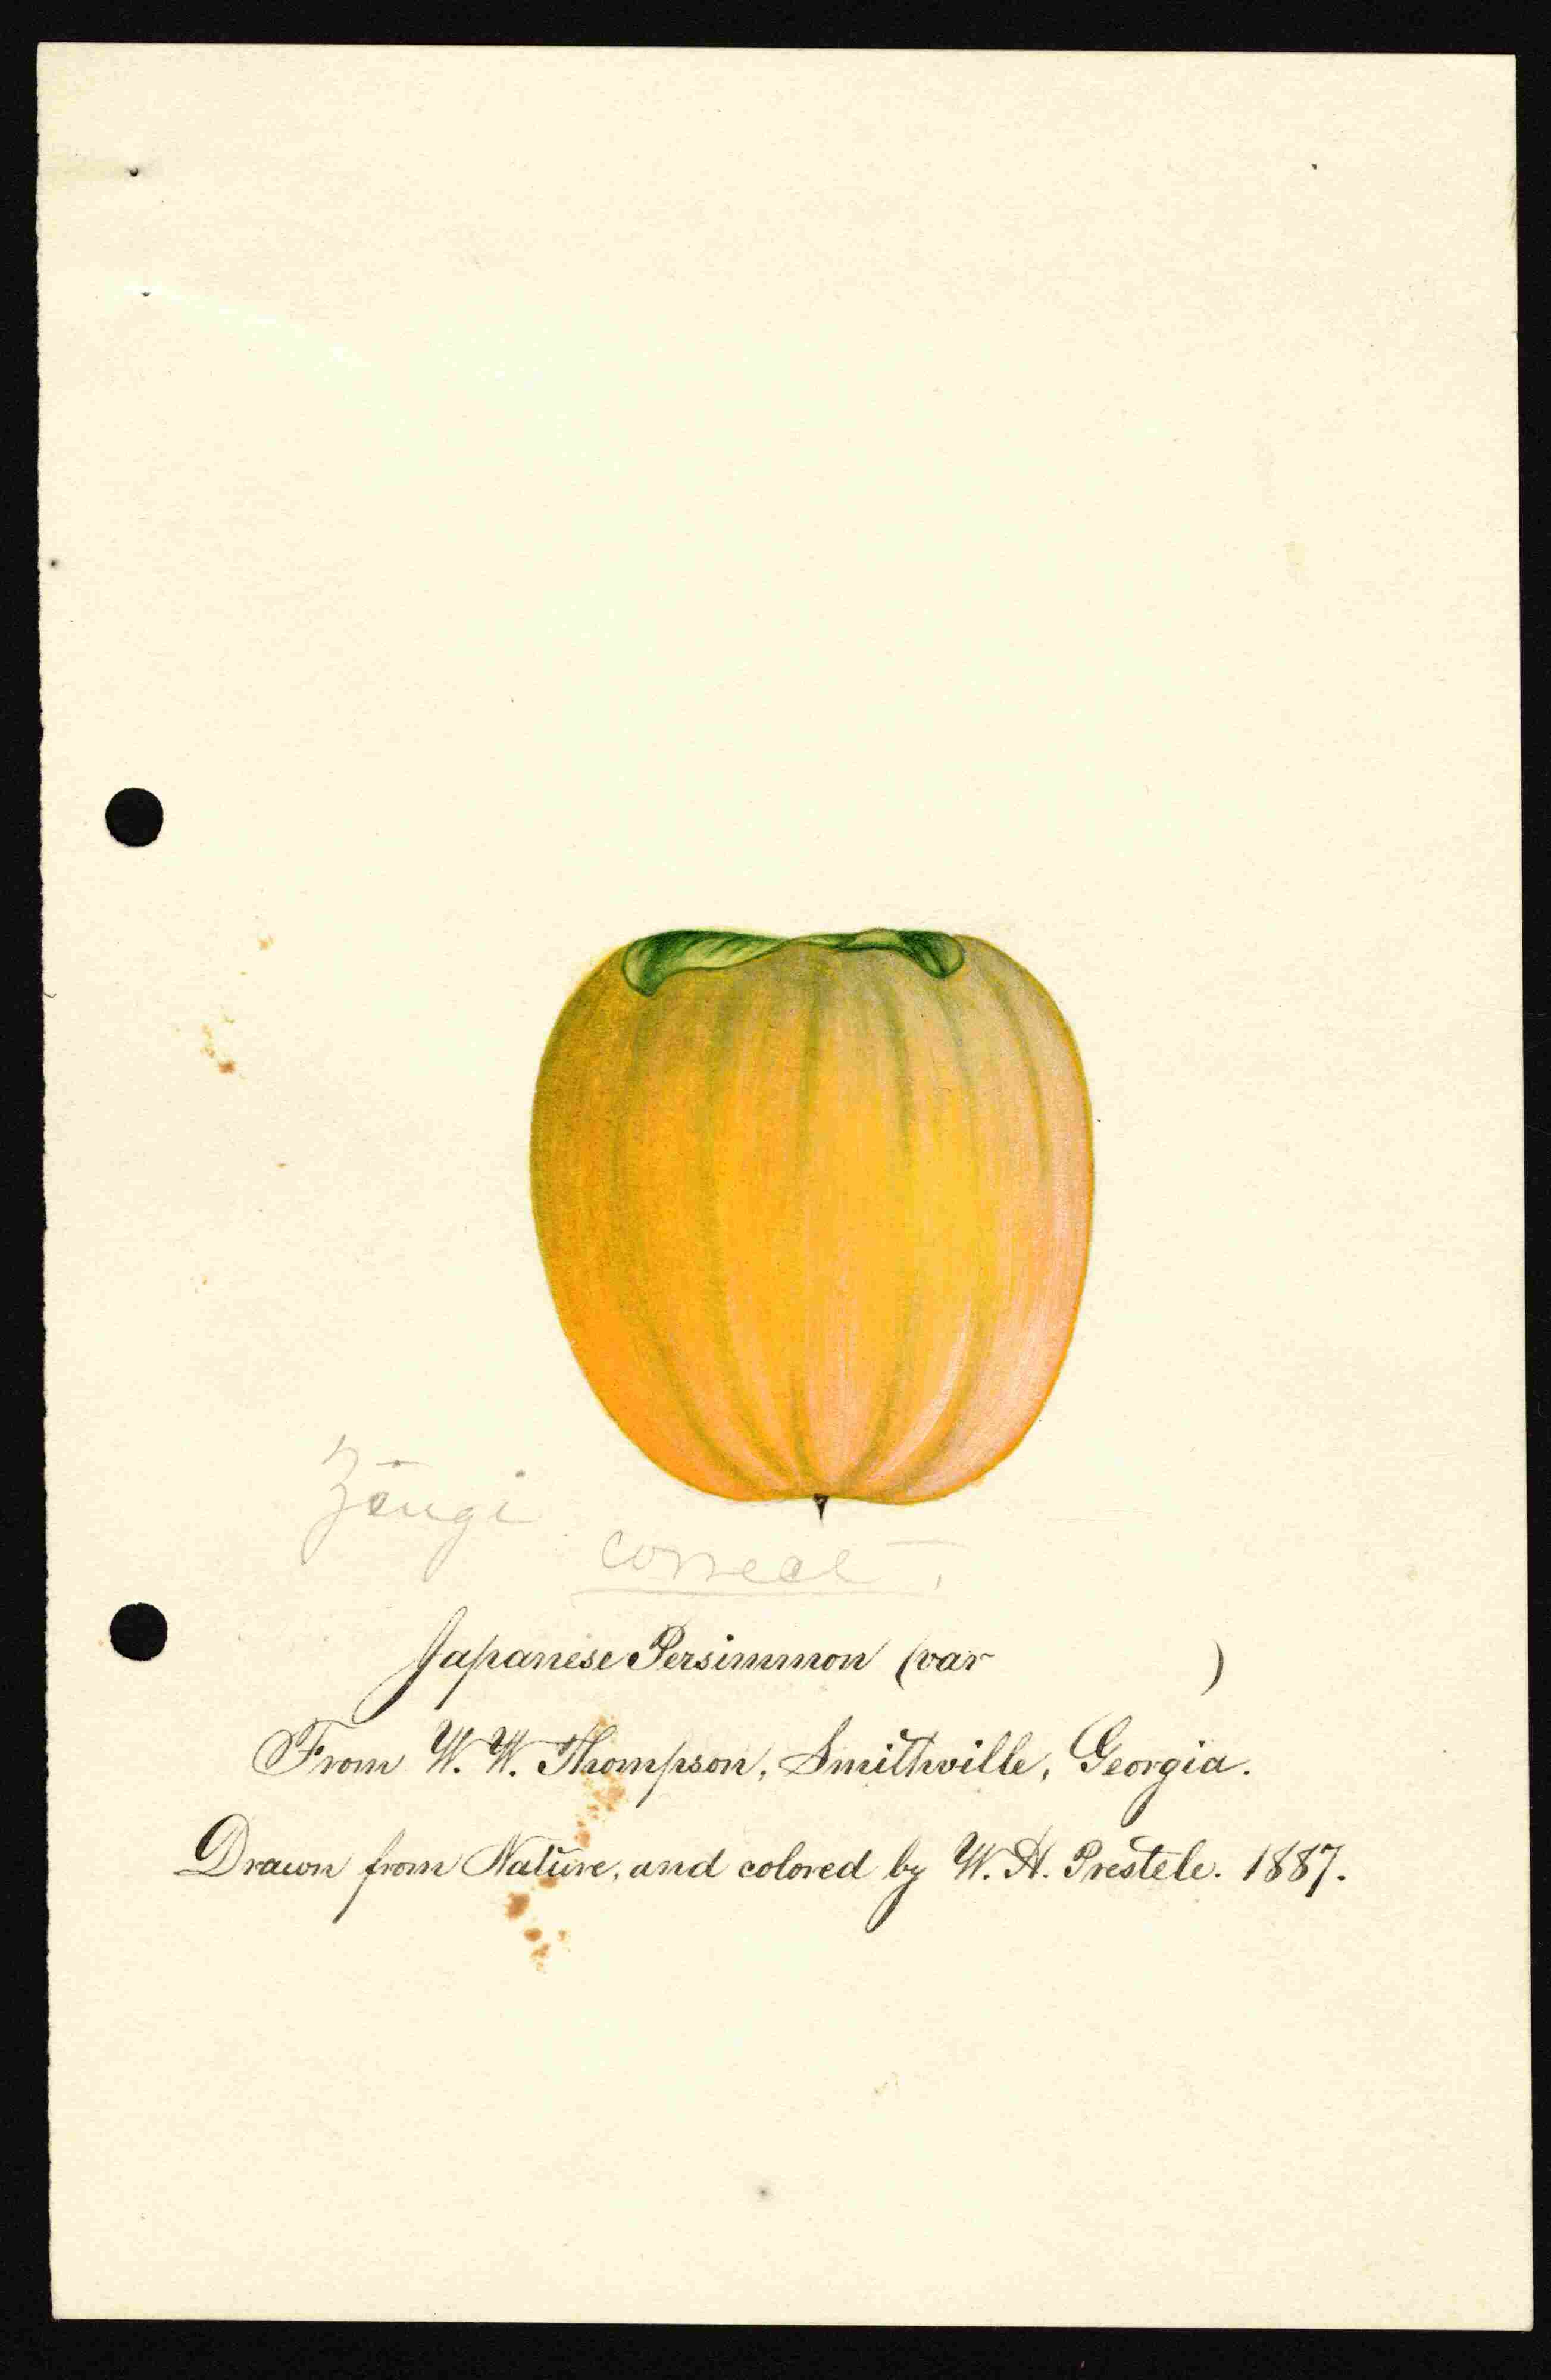 Zēngi
correct.
Japanese Persimmon (var )
From W. W. Thompson, Smithville, Georgia.
Drawn from Nature, and colored by W. H. Prestele. 1887.